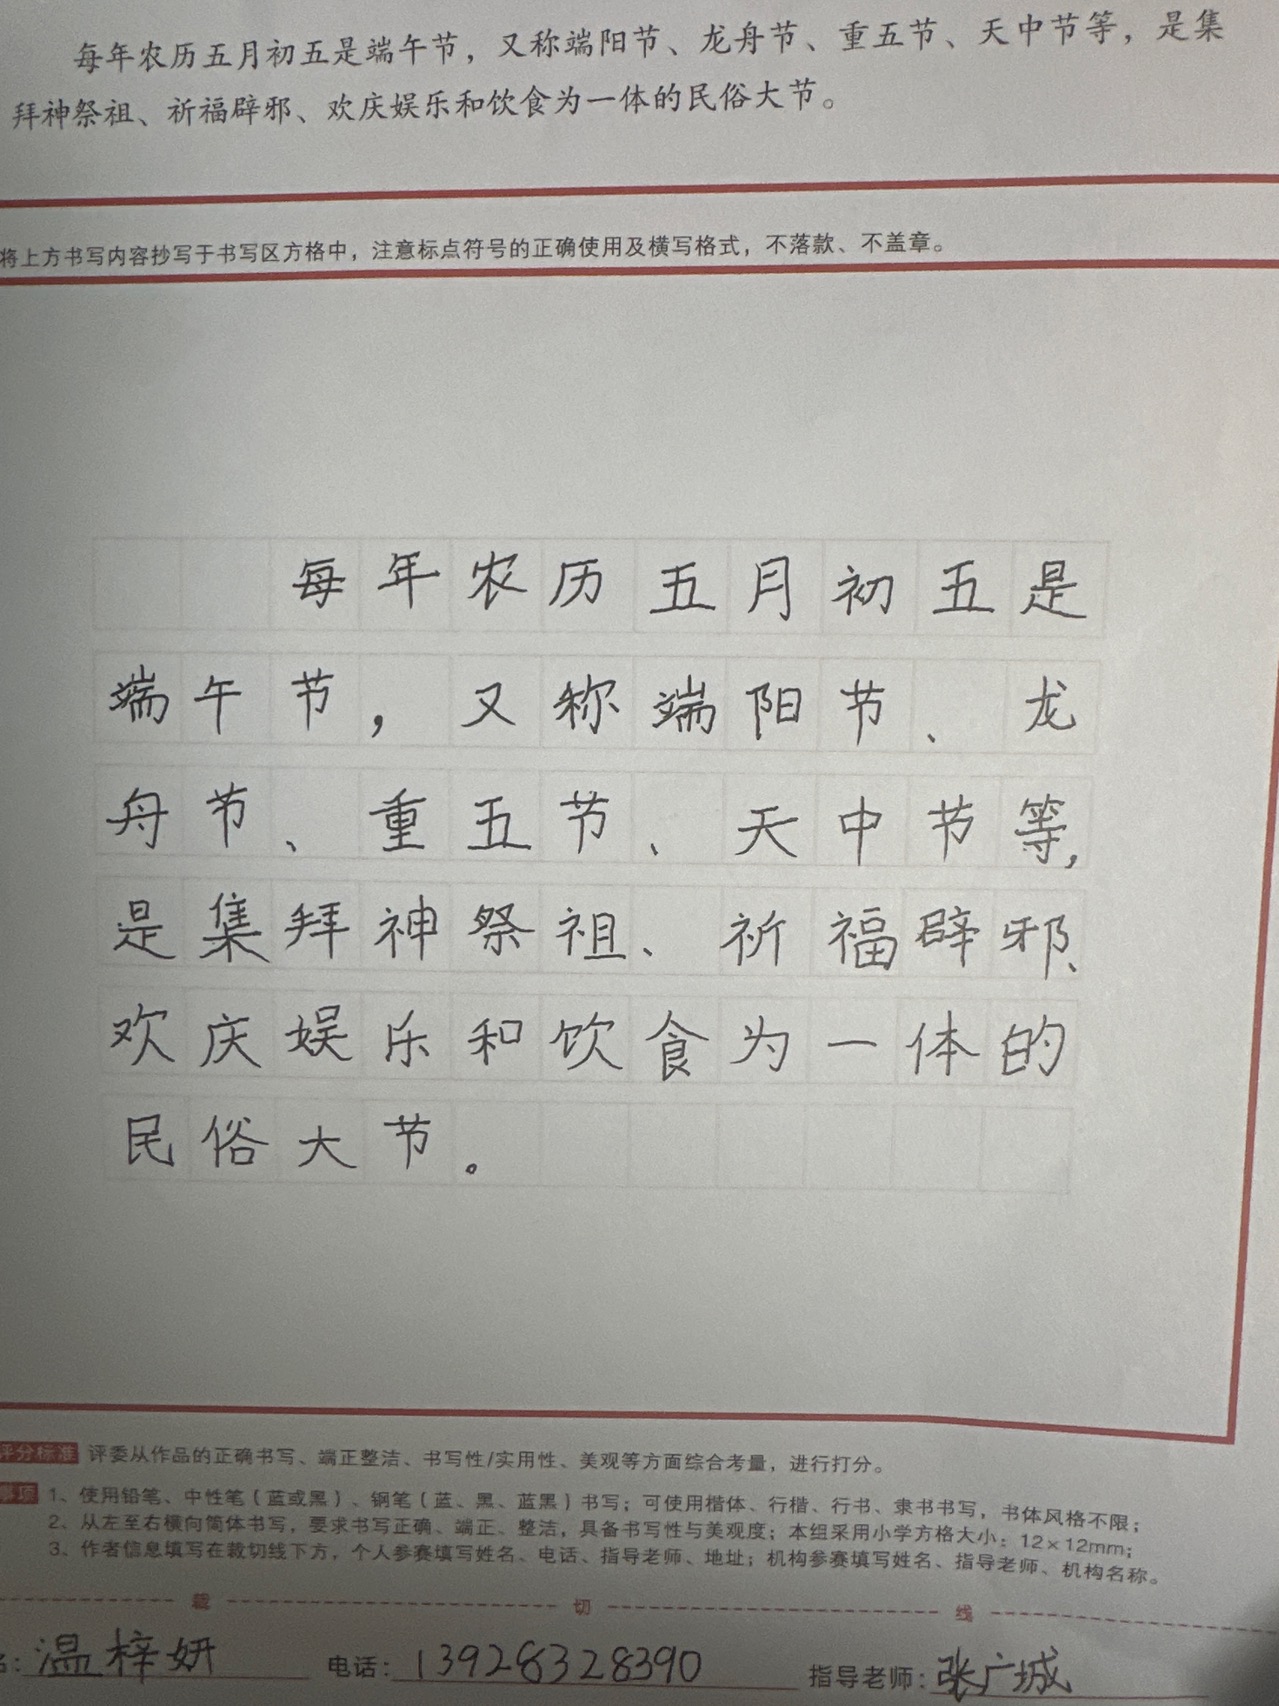 每年农历五月初五是端午节，又称端阳节、龙舟节、重五节、天中节等，是集
拜神祭祖、祈福辟邪、欢庆娱乐和饮食为一体的民俗大节。
将上方书写内容抄写于书写区方格中，注意标点符号的正确使用及横写格式，不落款、不盖章。
每年农历五月初五是
端午节，又称端阳节、龙
舟节、重五节、天中节等，
是集拜神祭祖、祈福辟邪、
欢庆娱乐和饮食为一体的
民俗大节。
评分标准 评委从作品的正确书写、端正整洁、书写性/实用性、美观等方面综合考量，进行打分。
事项 1、使用铅笔、中性笔（蓝或黑）、钢笔（蓝、黑、蓝黑）书写；可使用楷体、行楷、行书、隶书书写，书体风格不限；
2、从左至右横向简体书写，要求书写正确、端正、整洁，具备书写性与美观度；本组采用小学方格大小：12×12mm；
3、作者信息填写在裁切线下方，个人参赛填写姓名、电话、指导老师、地址；机构参赛填写姓名、指导老师、机构名称。
裁 切 线
名：温梓妍 电话：13928328390 指导老师：张广城